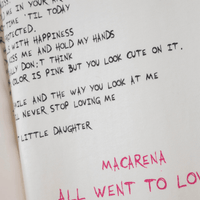 ME IN YOUR AR
TIME 'TIL TODAY
OTECTED.
WITH HAPPINESS
KISS ME AND HOLD MY HANDS
LLY DON;T THINK
COLOR IS PINK BUT YOU LOOK CUTE ON IT.
MILE AND THE WAY YOU LOOK AT ME
LL NEVER STOP LOVING ME
LITTLE DAUGHTER
MACARENA
ALL WENT TO LOV